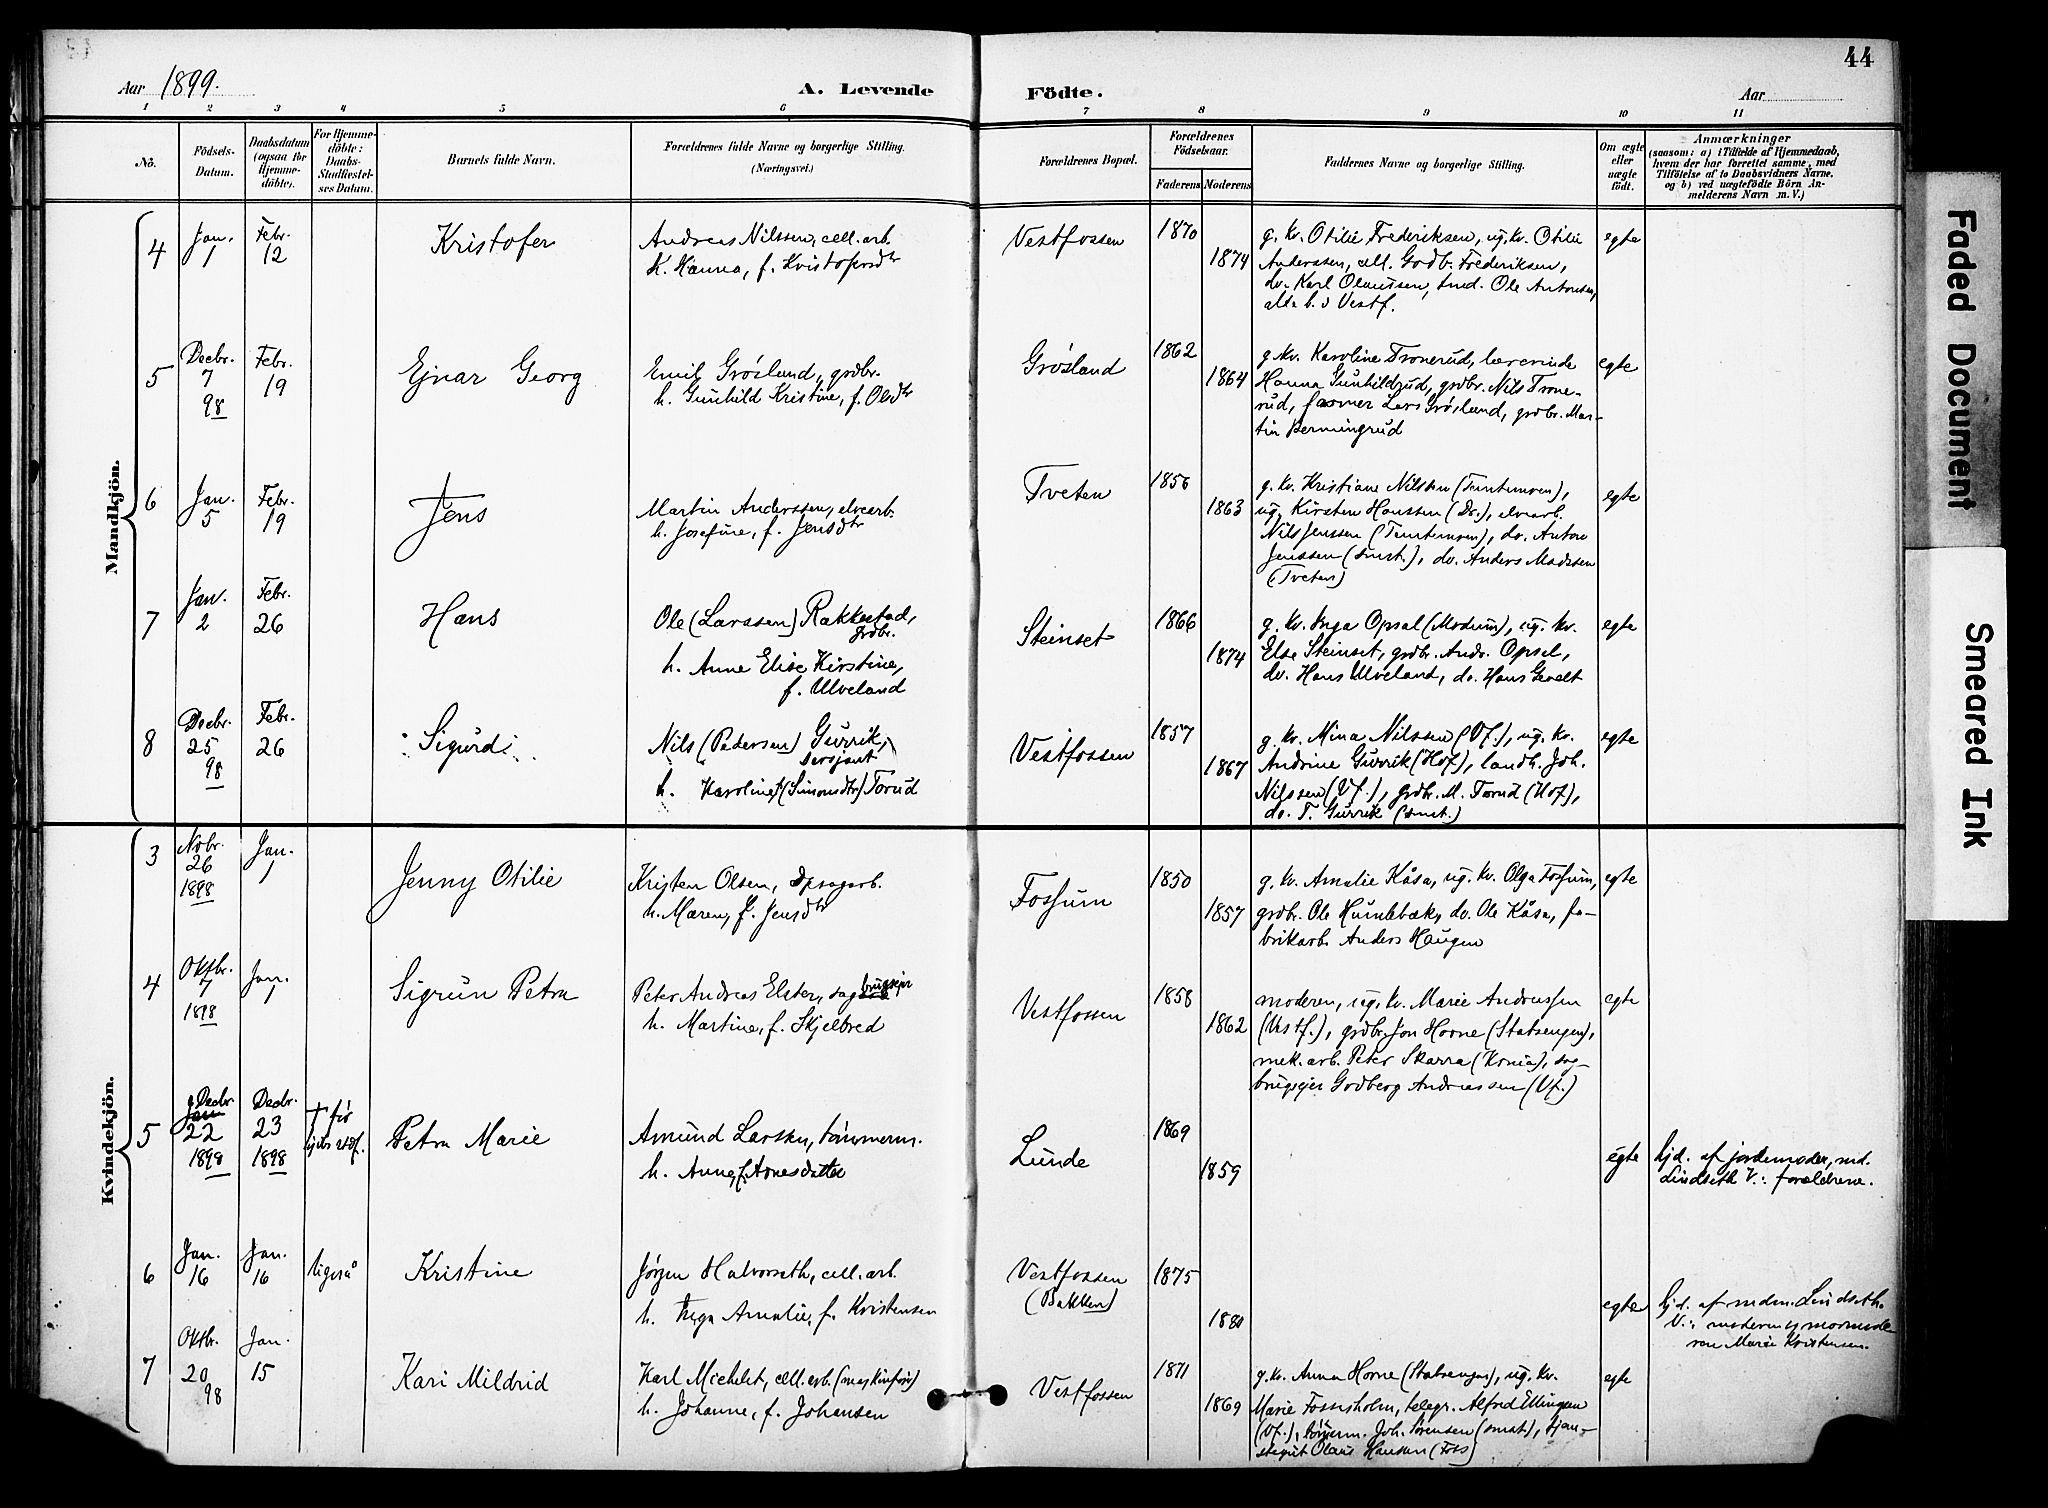 44
Aar 1899.
A. Levende Födte.
Aar
1 2 3 4 5 6 7 8 9 10 11
No.
Födsels-Datum.
Daabsdatum (ogsaa for Hjemme-döbte).
For Hjemme-döbte: Daabs-Stadfæstel-ses Datum.
Barnets fulde Navn.
Forældrenes fulde Navne og borgerlige Stilling. (Næringsvei.)
Forældrenes Bopæl.
Forældrenes Födselsaar.
Faderens Moderens
Faddernes Navne og borgerlige Stilling.
Om ægte eller uægte födt.
Anmærkninger
(saasom: a) i Tilfælde af Hjemmedaab,
hvem der har forrettet samme, med
Tilföielse af to Daabsvidners Navne,
og b) ved uægtefödte Börn An-
melderens Navn m. V.)
Mandkjön.
4 Jan. 1 Febr. 12 Kristofer
Andreas Nilssen, cell. arb.
K. Hanna, f. Kristofersdtr
Vestfossen 1870 1874
g. kv. Otilie Frederiksen, ug. kv. Otilie
Anderssen, cell. Godb. Frederiksen,
do. Karl Olaussen, smd. Ole Antonsen,
alle b. i Vestf.
egte
5 Decbr. 7 98 Febr. 19 Ejnar Georg
Emil Grøsland, grdbr.
h. Gunhild Kristine, f. Olsdtr
Grøsland 1862 1864
g. kv. Karoline Tronerud, lærerinde
Hanna Gunhildrud, grdbr. Nils Trone-
rud, Lars Grøsland, grdbr. Mar-
tin Bermingrud
egte
6 Jan. 5 Febr. 19 Jens
Martin Anderssen, elvearb.
h. Josefine, f. Jensdtr
Tveten 1856 1863
g. kv. Kristiane Nilsen
ug. Kirsten Hanssen (Dr.), elvearb.
Nils Jenssen do. Anton
Jenssen (smst.), do. Anders Madsen
(Tveten)
egte
7 Jan. 2 Febr. 26 Hans
Ole (Larssen) Rakkestad,
grdbr.
h. Anne Elise Kirstine,
f. Ulveland
Steinset 1866 1874
g. kv. Inga Opsal (Modum), ug. kv.
Else Steinset, grdbr. Andr. Opsal,
do. Hans Ulveland, do. Hans Gevelt
egte
8 Decbr. 25 98 Febr. 26 Sigurd
Nils (Pedersen) Gurrik,
Sersjant
h. Karoline (Simonsdtr) Torud
Vestfossen 1857 1867
g. kv. Mina Nilssen (Vf.), ug. kv.
Andrine Gurrik (Hof), landh. Joh.
Nilssen (Vf.), grdbr. M. Torud (Hof),
do. T. Gurrik (smst.)
egte
Kvindekjön.
3 Nobr. 26 1898 Jan. 1 Jenny Otilie
Kristen Olsen, dpsagarb.
h. Maren, f. Jensdtr
Fossum 1850 1857
g. kv. Amalie Kåsa, ug. kv. Olga Fossum,
grdbr. Ole Humlebæk, do. Ole Kåsa, fa-
brikarb. Anders Haugen
egte
4 Oktbr. 7 1898 Jan. 1 Sigrun Petra
Peter Andreas Elster, sagbrugsejer
h. Martine, f. Skjelbred
Vestfossen 1858 1862
moderen, ug. kv. Marie Andreassen
(Vestf.), grdbr. Jon Horne (Statsengen),
mek. arb. Peter Skarra (Krnia), sag-
brugsejer Godberg Andreassen (Vf.)
egte
5 Decbr. 22 1898 Decbr. 23 1898 † før
Petra Marie
Amund Larsen, tømmerm.
h. Anne, f. Arnesdatter
Lunde 1869 1859
egte
hjd. af jordemoder, md.
Lindseth V.: forældrene.
6 Jan. 16 Jan. 16 ligeså Kristine
Jørgen Halvorseth, cell. arb.
h. Inga Amalie, f. Kristensen
Vestfossen
(Bakken)
1875 1880
egte
hjd. af mdm. Lindseth.
V.: moderen og mormode-
ren Marie Kristensen.
7 Oktbr. 20 98 Jan. 15 Kari Mildrid
Karl Michelet, cell. arb. (maskinfør)
h. Johanne, f. Johansen
Vestfossen 1871 1869
g. kv. Anna Horne (Statsengen), ug. kv.
Marie Fossesholm, telegr. Alfred Ellingsen
(Vf.), tømerm. Joh. Sørensen (smst), tjan-
Olaus Hansen (Foss)
egte
Faded Document
Smeared Ink